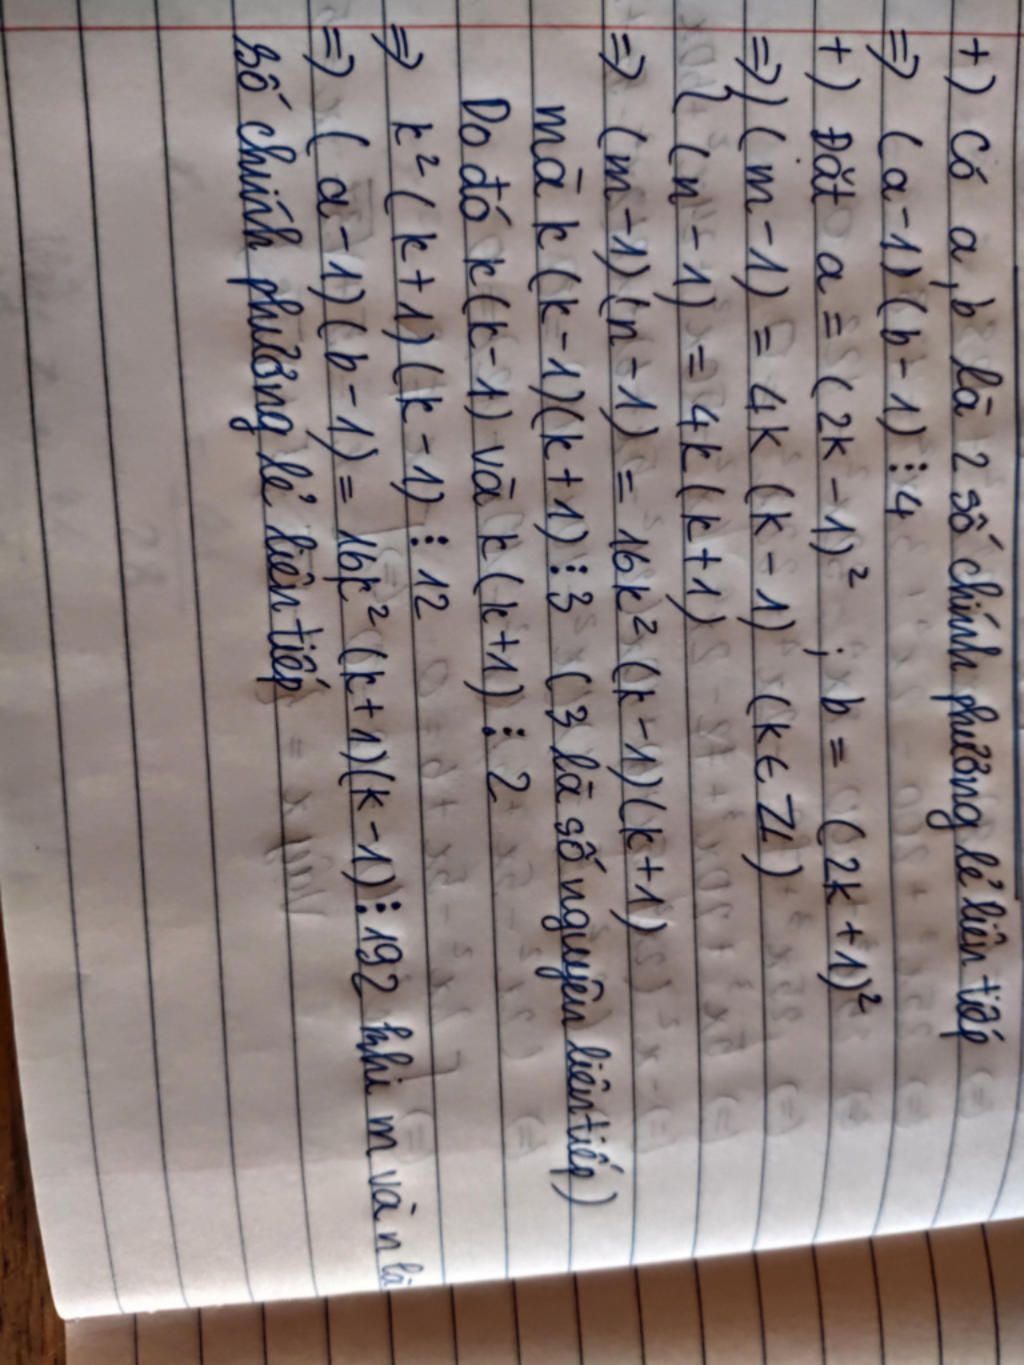 +) Có a, b là 2 số chính phương lẻ liên tiếp
=> (a-1)(b-1) ⋮ 4
+) Đặt a = (2k-1)² ; b = (2k+1)²
=> { (m-1) = 4k (k-1) (k ∈ Z)
{ (n-1) = 4k (k+1)
=> (m-1)(n-1) = 16k² (k-1)(k+1)
mà k(k-1)(k+1) ⋮ 3 (3 là số nguyên liên tiếp)
Do đó k(k-1) và k(k+1) ⋮ 2
=> k² (k+1)(k-1) ⋮ 12
=> (a-1)(b-1) = 16k² (k+1)(k-1) ⋮ 192 khi m và n là
số chính phương lẻ liên tiếp